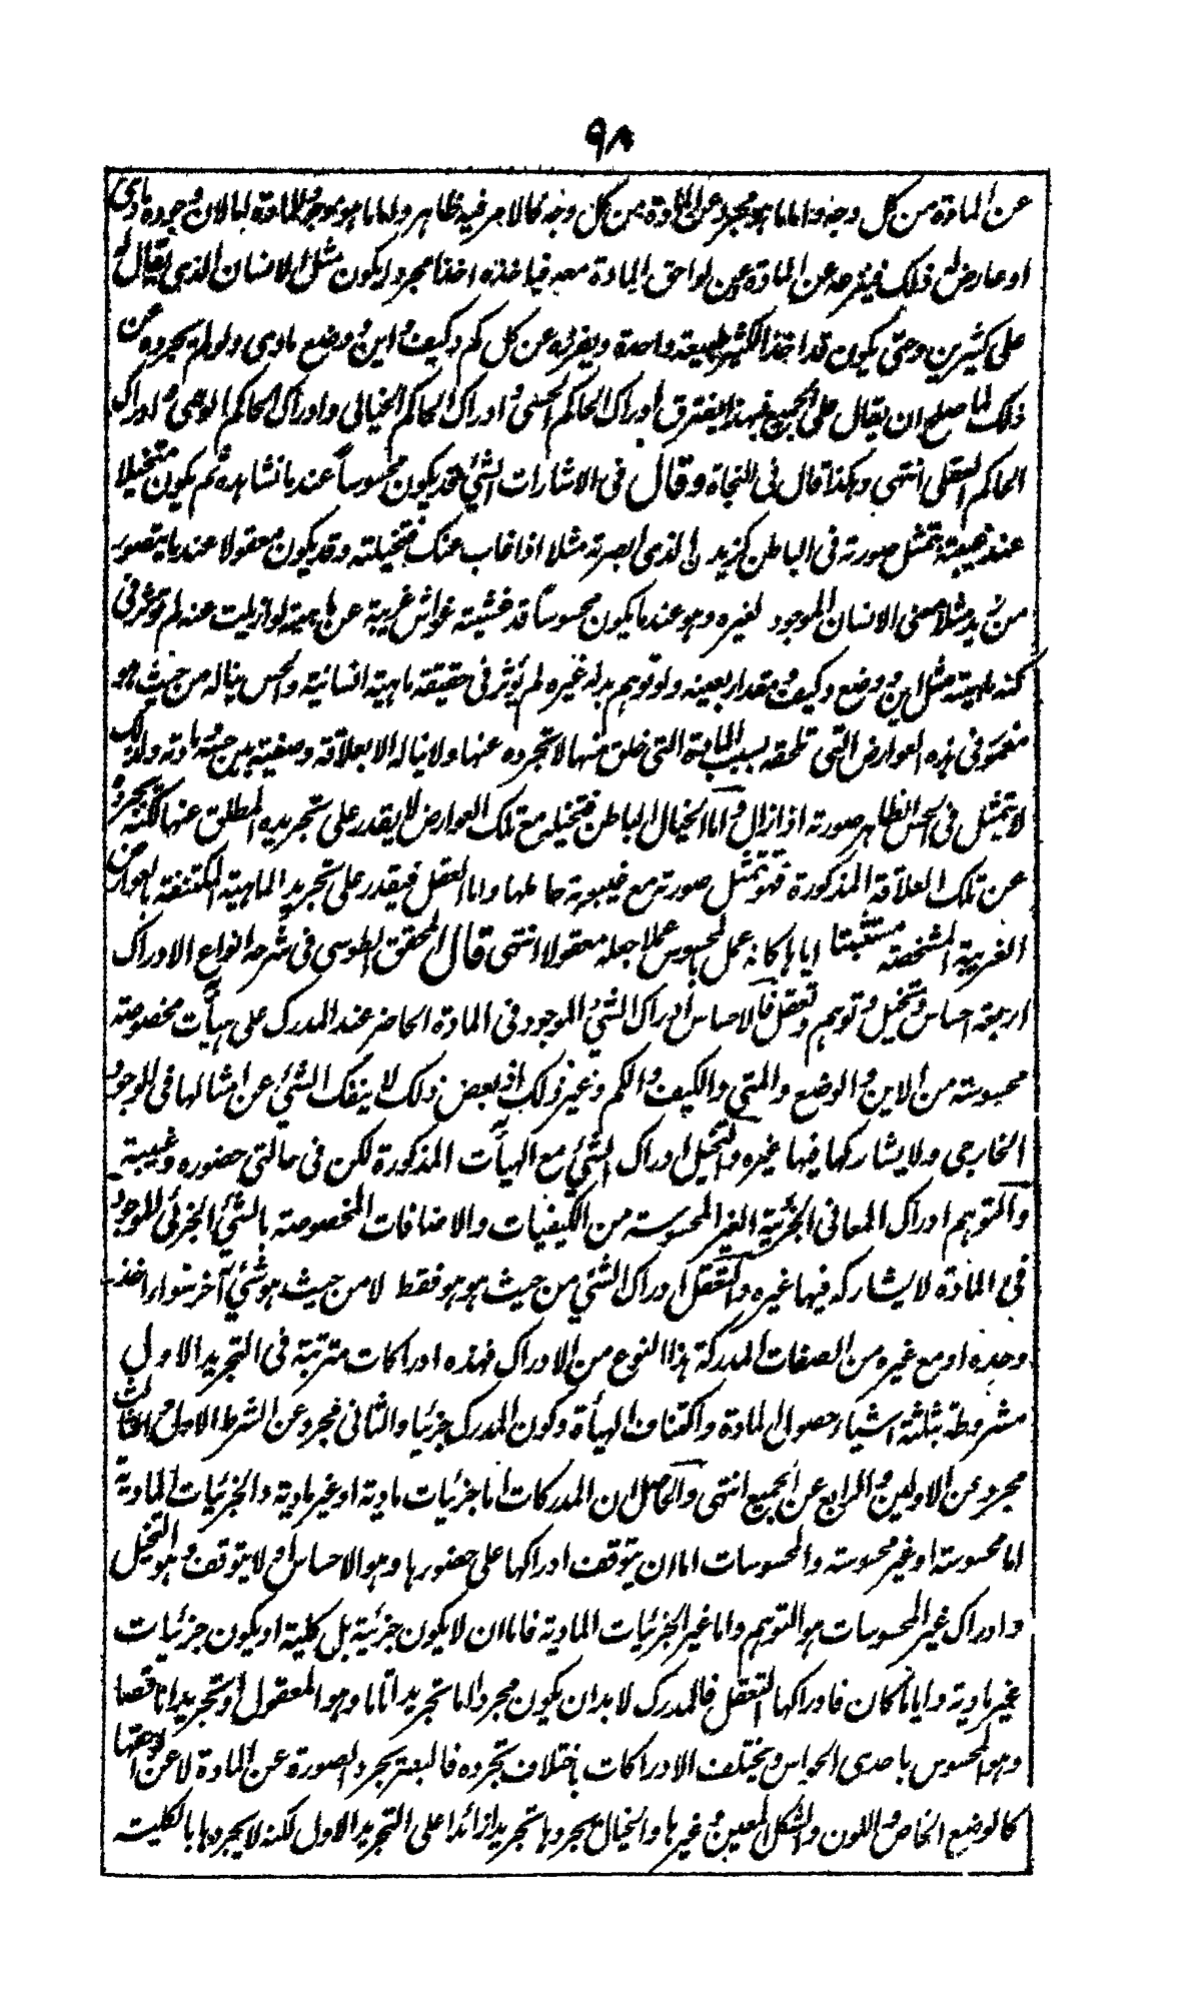 ٩٨
عن المادة من كل وجه واما ما هو مجرد عن المادة من كل وجه فالامر فيه ظاهر واما ما هو موجود للمادة اما لان وجوده مادى
او عارض له ذلك فينزعه عن المادة وعن لواحق المادة معه فياخذه اخذا مجردا يكون مثل الانسان الذى يقال
على كثيرين وحتى يكون قد اخذ الكثير طبيعة واحدة ويفرزه عن كل كم وكيف واين ووضع مادى ولو لم يجرده عن
ذلك لما صلح ان يقال على الجميع فبهذا يفترق ادراك الحاكم الحسى وادراك الحاكم الخيالى وادراك الحاكم الوهمى وادراك
الحاكم العقلى انتهى وهكذا قال فى النجاة وقال فى الاشارات الشئ قد يكون محسوساً عند ما نشاهده ثم يكون متخيلا
عند غيبته بتمثل صورته فى الباطن كزيد ن الذى ابصرته مثلا اذا غاب عنك فتخيلته وقد يكون معقولا عند ما يتصور
من زيد مثلا معنى الانسان الموجود لغيره وهو عند ما يكون محسوساً قد غشيته غواش غريبة عن ماهيته لو ازيلت عنه لم تؤثر فى
كنه ماهيته مثل اين ووضع وكيف ومقدار بعينه ولو توهم بدله غيره لم يؤثر فى حقيقة ماهية انسانية والحس يناله من حيث هو
مغمور فى هذه العوارض التى تلحقه بسبب المادة التى خلق منها لا تجرده عنها ولا يناله الا بعلاقة وضعية بين حسه ومادته ولذلك
لا يتمثل فى الحس الظاهر صورته اذا زال واما الخيال الباطن فتخيله مع تلك العوارض لا يقدر على تجريده المطلق عنها لكنه يجرده
عن تلك العلاقة المذكورة فهو تمثل صورته مع غيبوبة حاملها واما العقل فيقدر على تجريد الماهية المكتنفة بالعوارض
الغريبة المشخصة مستثبتا اياها كانه عمل بالمحسوس عملا جعله معقولا انتهى قال المحقق الطوسى فى شرحه انواع الادراك
اربعة احساس وتخيل وتوهم وتعقل فالاحساس ادراك الشئ الموجود فى المادة الحاضر عند المدرك على هيأت مخصوصة
محسوسة من الاين والوضع والمتى والكيف والكم وغير ذلك اذ بعض ذلك لا ينفك الشئ عن امثالها فى الوجود
الخارجى ولا يشاركها فيها غيره والتخيل ادراك الشئ مع الهيأت المذكورة لكن فى حالتى حضوره وغيبته
والتوهم ادراك المعانى الجزئية الغير المحسوسة من الكيفيات والاضافات المخصوصة بالشئ الجزئى الموجود
فى المادة لا يشاركه فيها غيره والتعقل ادراك الشئ من حيث هو هو فقط لا من حيث هو شئ آخر سواء اخذ
وحده او مع غيره من الصفات المدركة هذا النوع من الادراك فهذه ادراكات مترتبة فى التجريد الاول
مشروطة بثلثة اشياء حصول المادة واكتناف الهيأة وكون المدرك جزئيا والثانى مجرد عن الشرط الاول والثالث
مجرد عن الاولين والرابع عن الجميع انتهى والحاصل ان المدركات اما جزئيات مادية او غير مادية والجزئيات المادية
اما محسوسة او غير محسوسة والمحسوسات اما ان يتوقف ادراكها على حضورها وهو الاحساس او لا يتوقف وهو التخيل
وادراك غير المحسوسات هو التوهم واما غير الجزئيات المادية فاما ان لا يكون جزئية بل كلية او يكون جزئيات
غير مادية وايا ما كان فادراكها التعقل فالمدرك لا بد ان يكون مجردا اما تجريدا تاما وهو المعقول او تجريدا ناقصا
وهو المحسوس باحدى الحواس ويختلف الادراكات باختلاف تجرده فالبصر يجرد الصورة عن المادة لا عن لواحقها
كالوضع الخاص واللون والشكل المعين وغيرها والخيال يجردها تجريدا زائدا على التجريد الاول لكنه لا يجردها بالكلية